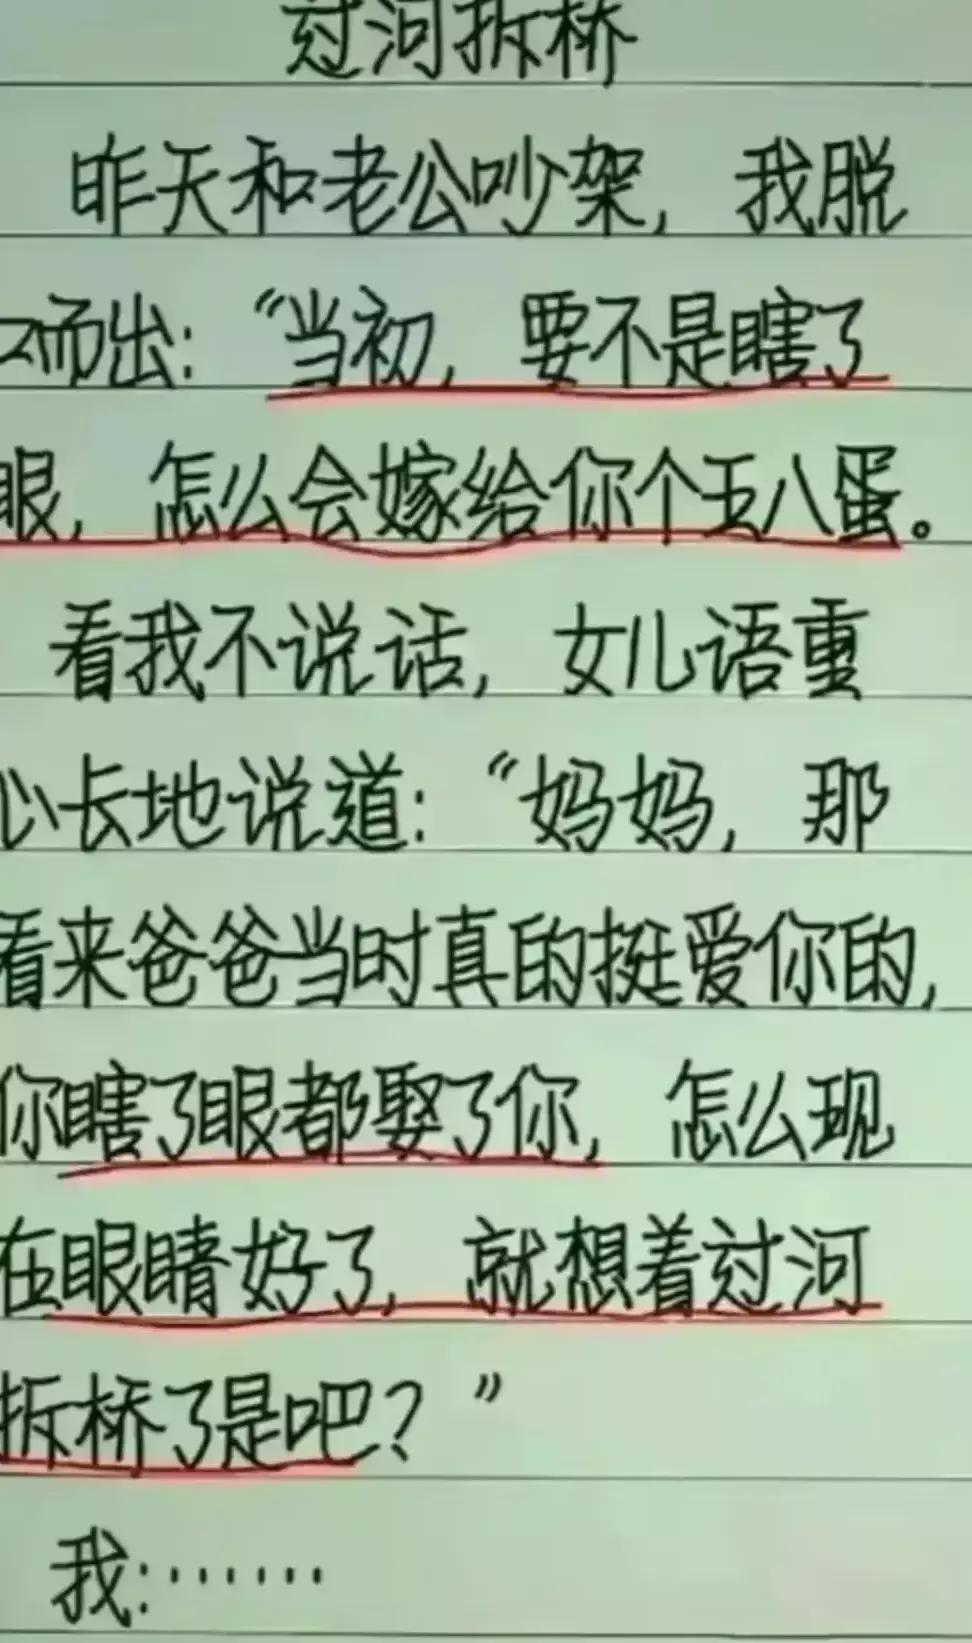 过河拆桥
昨天和老公吵架，我脱
口而出：“当初，要不是瞎了
眼，怎么会嫁给你个王八蛋。
看我不说话，女儿语重
心长地说道：“妈妈，那
看来爸爸当时真的挺爱你的，
你瞎了眼都娶了你，怎么现
在眼睛好了，就想着过河
拆桥了是吧？”
我：……